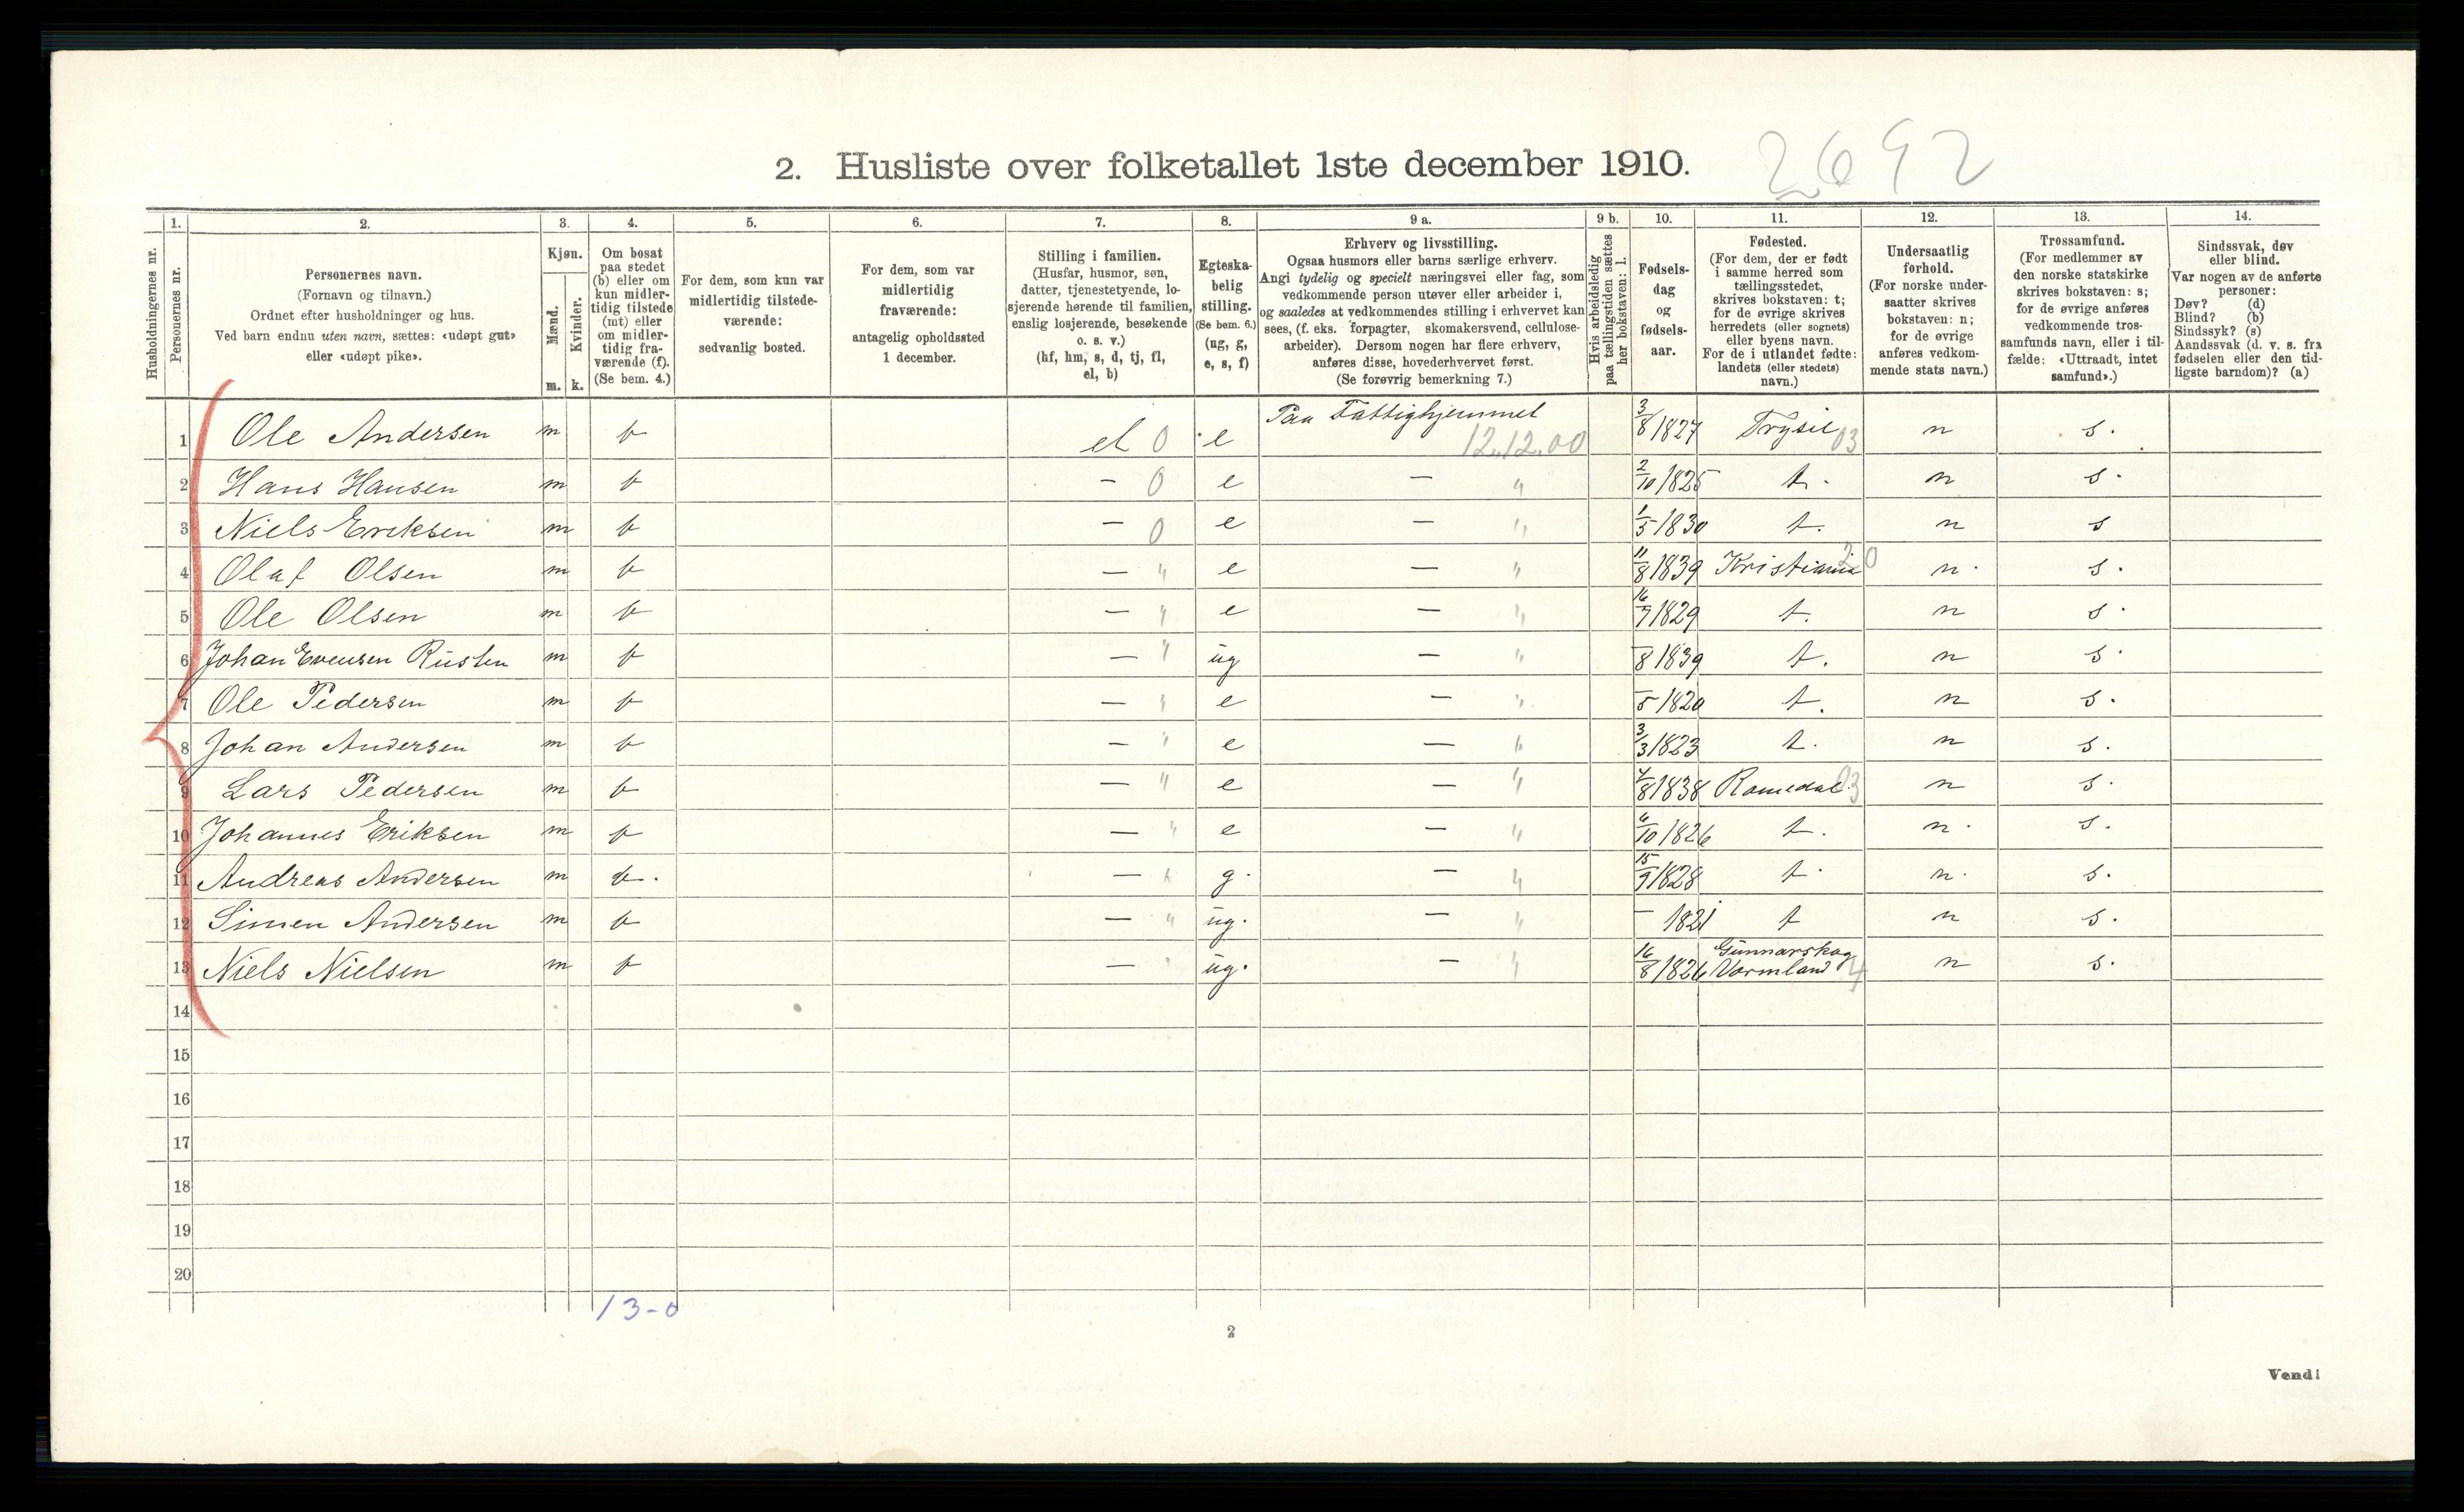 2692
2. Husliste over folketallet 1ste december 1910.
1. 2. 3. 4. 5. 6. 7. 8. 9 a. 9 b. 10. 11. 12. 13. 14.
Husholdningernes nr.
Personernes nr.
Personernes navn.
(Fornavn og tilnavn.)
Ordnet efter husholdninger og hus.
Ved barn endnu uten navn, sættes: «udøpt gut»
eller «udøpt pike».
Kjøn.
Mænd.
Kvinder.
m. k.
Om bosat
paa stedet
(b) eller om
kun midler-
tidig tilstede
(mt) eller
om midler-
tidig fra-
værende (f).
(Se bem. 4.)
For dem, som kun var
midlertidig tilstede-
værende:
sedvanlig bosted.
For dem, som var
midlertidig
fraværende:
antagelig opholdssted
1 december.
Stilling i familien.
(Husfar, husmor, søn,
datter, tjenestetyende, lo-
sjerende hørende til familien,
enslig losjerende, besøkende
o. s. v.)
(hf, hm, s, d, tj, fl,
el, b)
Egteska-
belig
stilling.
(Se bem. 6.)
(ug, g,
e, s, f)
Erhverv og livsstilling.
Ogsaa husmors eller barns særlige erhverv.
Angi tydelig og specielt næringsvei eller fag, som
vedkommende person utøver eller arbeider i,
og saaledes at vedkommendes stilling i erhvervet kan
sees, (f. eks. forpagter, skomakersvend, cellulose-
arbeider). Dersom nogen har flere erhverv,
anføres disse, hovederhvervet først.
(Se forøvrig bemerkning 7.)
Hvis arbeidsledig
paa tællingstiden sættes
her bokstaven: l.
Fødsels-
dag
og
fødsels-
aar.
Fødested.
(For dem, der er født
i samme herred som
tællingsstedet,
skrives bokstaven: t;
for de øvrige skrives
herredets (eller sognets)
eller byens navn.
For de i utlandet fødte:
landets (eller stedets)
navn.)
Undersaatlig
forhold.
(For norske under-
saatter skrives
bokstaven: n;
for de øvrige
anføres vedkom-
mende stats navn.)
Trossamfund.
(For medlemmer av
den norske statskirke
skrives bokstaven: s;
for de øvrige anføres
vedkommende tros-
samfunds navn, eller i til-
fælde: «Uttraadt, intet
samfund».)
Sindssvak, døv
eller blind.
Var nogen av de anførte
personer:
Døv? (d)
Blind? (b)
Sindssyk? (s)
Aandssvak (d. v. s. fra
fødselen eller den tid-
ligste barndom)? (a)
1 Ole Andersen m b el 0 e Paa Fattighjemmet 12.12.00 3/8 1827 Trysil 03 n s.
2 Hans Hansen m b – 0 e – " 2/10 1825 t. n s.
3 Niels Eriksen m b – 0 e – " 1/5 1830 t. n s
4 Olaf Olsen m b – " e – " 11/8 1839 Kristiania 20 n. s.
5 Ole Olsen m b – " e – " 16/7 1829 t. n s.
6 Johan Evensen Rusten m b – " ug – " –/8 1839 t. n s.
7 Ole Pedersen m b – " e – " –/5 1820 t. n s.
8 Johan Andersen m b – " e – " 3/3 1823 t. n s.
9 Lars Pedersen m b – " e – " 4/8 1838 Romedal 03 n s.
10 Johannes Eriksen m b – " e – " 6/10 1826 t. n. s.
11 Andreas Andersen m b. – " g. – " 15/9 1828 t. n. s.
12 Simen Andersen m b – " ug. – " – 1821 t n s.
13 Niels Nielsen m b – " ug. – " 16/8 1826 Gunnarskog Varmland 4 n s.
14
15
16
17
18
19
20
13-0
2
Vend!